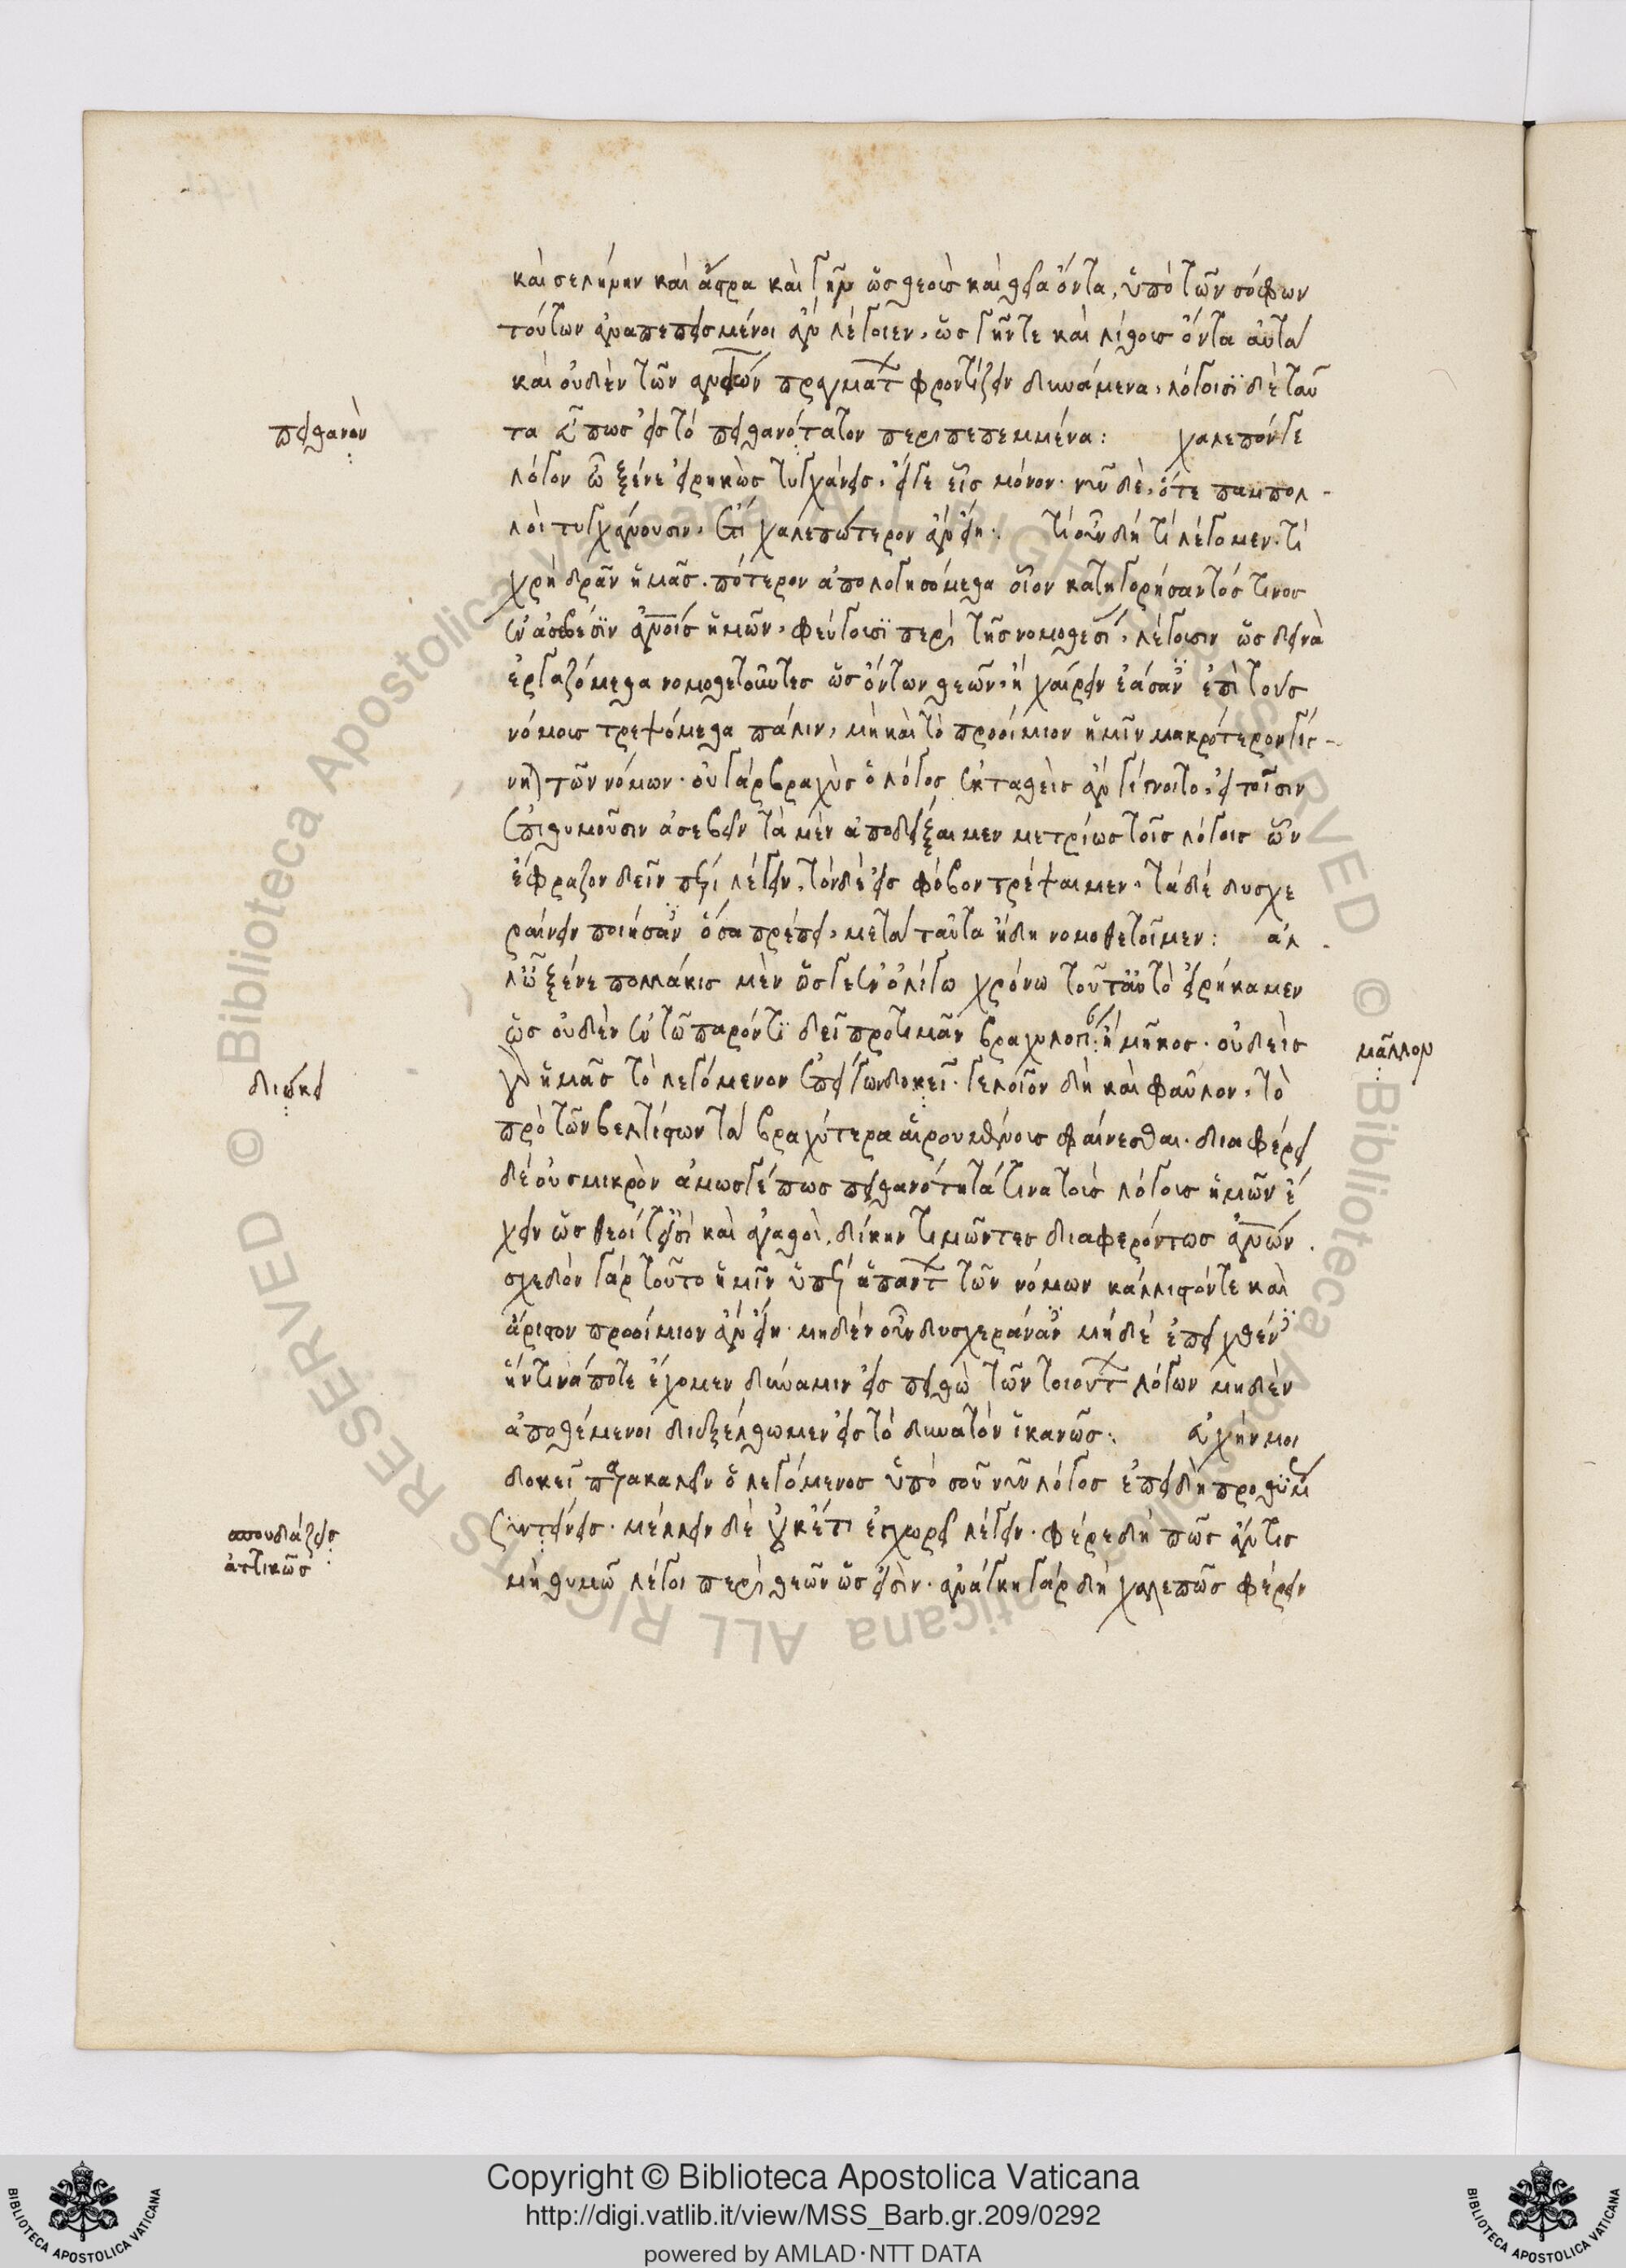 καὶ σελήνην καὶ ἄστρα καὶ γῆν ὡς θεοὺς καὶ θεῖα ὄντα, ὑπὸ τῶν σόφων
τούτων ἀναπεπεισμένοι ἂν λέγοιεν, ὡς γῆν τε καὶ λίθους ὄντα αὐτὰ
καὶ οὐδὲν τῶν ἀνθρωπείων πραγμάτων φροντίζειν δυνάμενα, λόγοισι δὲ ταῦ
τα εὖ πως εἰς τὸ πιθανότατον περιπεπεμμένα: χαλεπόν γε
πειθανὸν
λόγον ὦ ξένε εἰρηκὼς τυγχάνεις, εἴ γε εἷς μόνον· νῦν δὲ, ὅτε παμπολ-
λοὶ τυγχάνουσιν, ἔτι χαλεπώτερον ἂν εἴη: τί οὖν δή τί λέγομεν· τί
χρὴ δρᾶν ἡμᾶς· πότερον ἀπολογησόμεθα οἷον κατηγορήσαντός τινος
ἐν ἀσεβέσιν ἀνθρώποις ἡμῶν, φεύγουσι περὶ τῆς νομοθεσίας, λέγουσιν ὡς δεινὰ
ἐργαζόμεθα νομοθετοῦντες ὡς ὄντων θεῶν, ἢ χαίρειν ἐάσαντες ἐπὶ τοὺς
νόμους τρεψόμεθα πάλιν, μὴ καὶ τὸ προοίμιον ἡμῖν μακρότερον γίγ-
νηται τῶν νόμων· οὐ γὰρ βραχὺς ὁ λόγος ἐκταθεὶς ἂν γίγνοιτο, εἰ τοῖσιν
ἐπιθυμοῦσιν ἀσεβεῖν τὰ μὲν ἀποδείξαιμεν μετρίως τοῖς λόγοις ὧν
ἔφραζον δεῖν πέρι λέγειν, τὸν δὲ εἰς φόβον τρέψαιμεν, τὰ δὲ δυσχε
ραίνειν ποιήσαντες ὅσα πρέπει, μετὰ ταῦτα ἤδη νομοθετοῖμεν: ἀλ
λ' ὦ ξένε πολλάκις μὲν ὥς γε ἐν ὀλίγω χρόνω τοῦτ' αὐτὸ εἰρήκαμεν
ὡς οὐδὲν ἐν τῶ παρόντι δεῖ προτιμᾶν βραχυλογίαν ἢ μῆκος· οὐδεὶς
μᾶλλον
γὰρ ἡμᾶς τὸ λεγόμενον ἐπείγων δοκεῖ· γελοῖον δὴ καὶ φαῦλον, τὸ
διώκει
πρὸ τῶν βελτίστων τὰ βραχύτερα αἱρουμένους φαίνεσθαι· διαφέρει
δὲ οὐ σμικρὸν ἁμῶς γέ πως πιθανότητά τινα τοὺς λόγους ἡμῶν ἔ
χειν ὡς θεοί τ' εἰσὶ καὶ ἀγαθοὶ, δίκην τιμῶντες διαφερόντως ἀνθρώπων.
σχεδὸν γὰρ τοῦτο ἡμῖν ὑπὲρ ἁπάντων τῶν νόμων κάλλιστόν τε καὶ
ἄριστον προοίμιον ἂν εἴη· μηδὲν οὖν δυσχεράναντες μηδὲ ἐπειχθέντες
ἥντινά ποτε ἔχομεν δύναμιν εἰς πειθὼ τῶν τοιούτων λόγων μηδὲν
ἀποθέμενοι διεξέλθωμεν εἰς τὸ δυνατὸν ἱκανῶς: εὐχήν μοι
δοκεῖ παρακαλεῖν ὁ λεγόμενος ὑπὸ σοῦ νῦν λόγος ἐπειδὴ προθύμως
συντείνεις· μέλλειν δὲ οὐκέτι ἐγχωρεῖ λέγειν· φέρε δὴ πῶς ἄν τις
σπουδάζεις
ἀττικῶς
μὴ θυμῶ λέγοι περὶ θεῶν ὡς εἰσὶν· ἀνάγκη γὰρ δὴ χαλεπῶς φέρειν
Copyright © Biblioteca Apostolica Vaticana
http://digi.vatlib.it/view/MSS_Barb.gr.209/0292
powered by AMLAD·NTT DATA